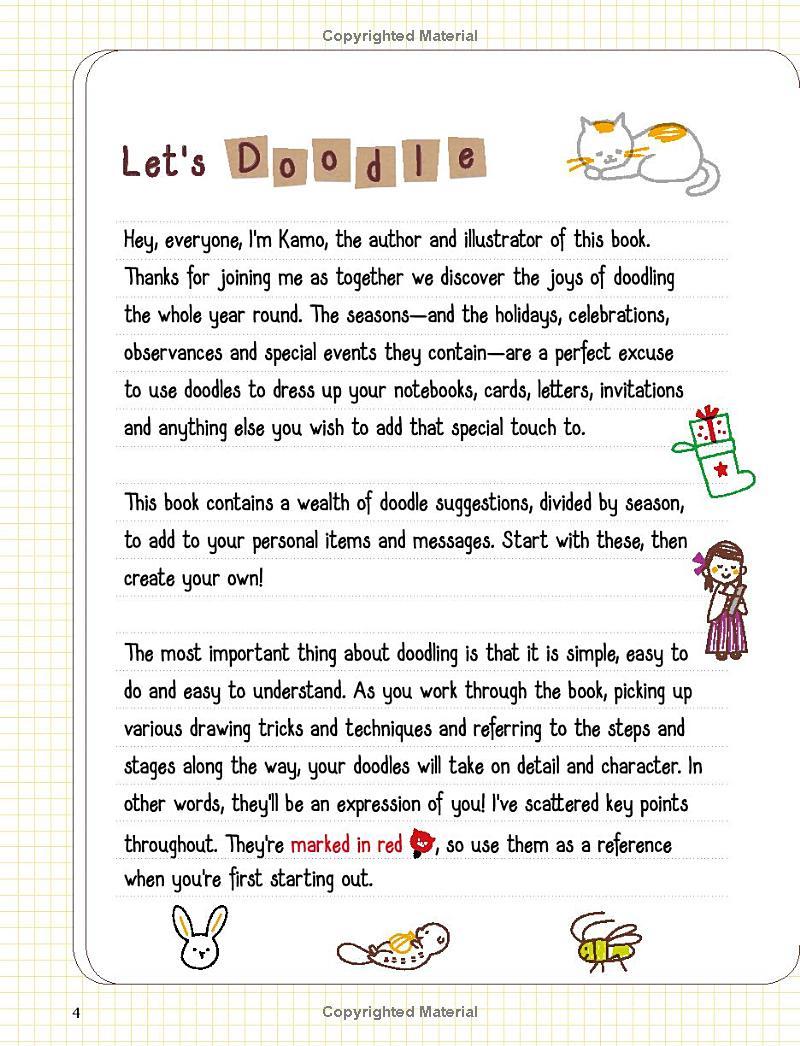 Copyrighted Material
Let's Doodle
Hey, everyone, I'm Kamo, the author and illustrator of this book.
Thanks for joining me as together we discover the joys of doodling
the whole year round. The seasons—and the holidays, celebrations,
observances and special events they contain—are a perfect excuse
to use doodles to dress up your notebooks, cards, letters, invitations
and anything else you wish to add that special touch to.
This book contains a wealth of doodle suggestions, divided by season,
to add to your personal items and messages. Start with these, then
create your own!
The most important thing about doodling is that it is simple, easy to
do and easy to understand. As you work through the book, picking up
various drawing tricks and techniques and referring to the steps and
stages along the way, your doodles will take on detail and character. In
other words, they'll be an expression of you! I've scattered key points
throughout. They're marked in red , so use them as a reference
when you're first starting out.
4
Copyrighted Material